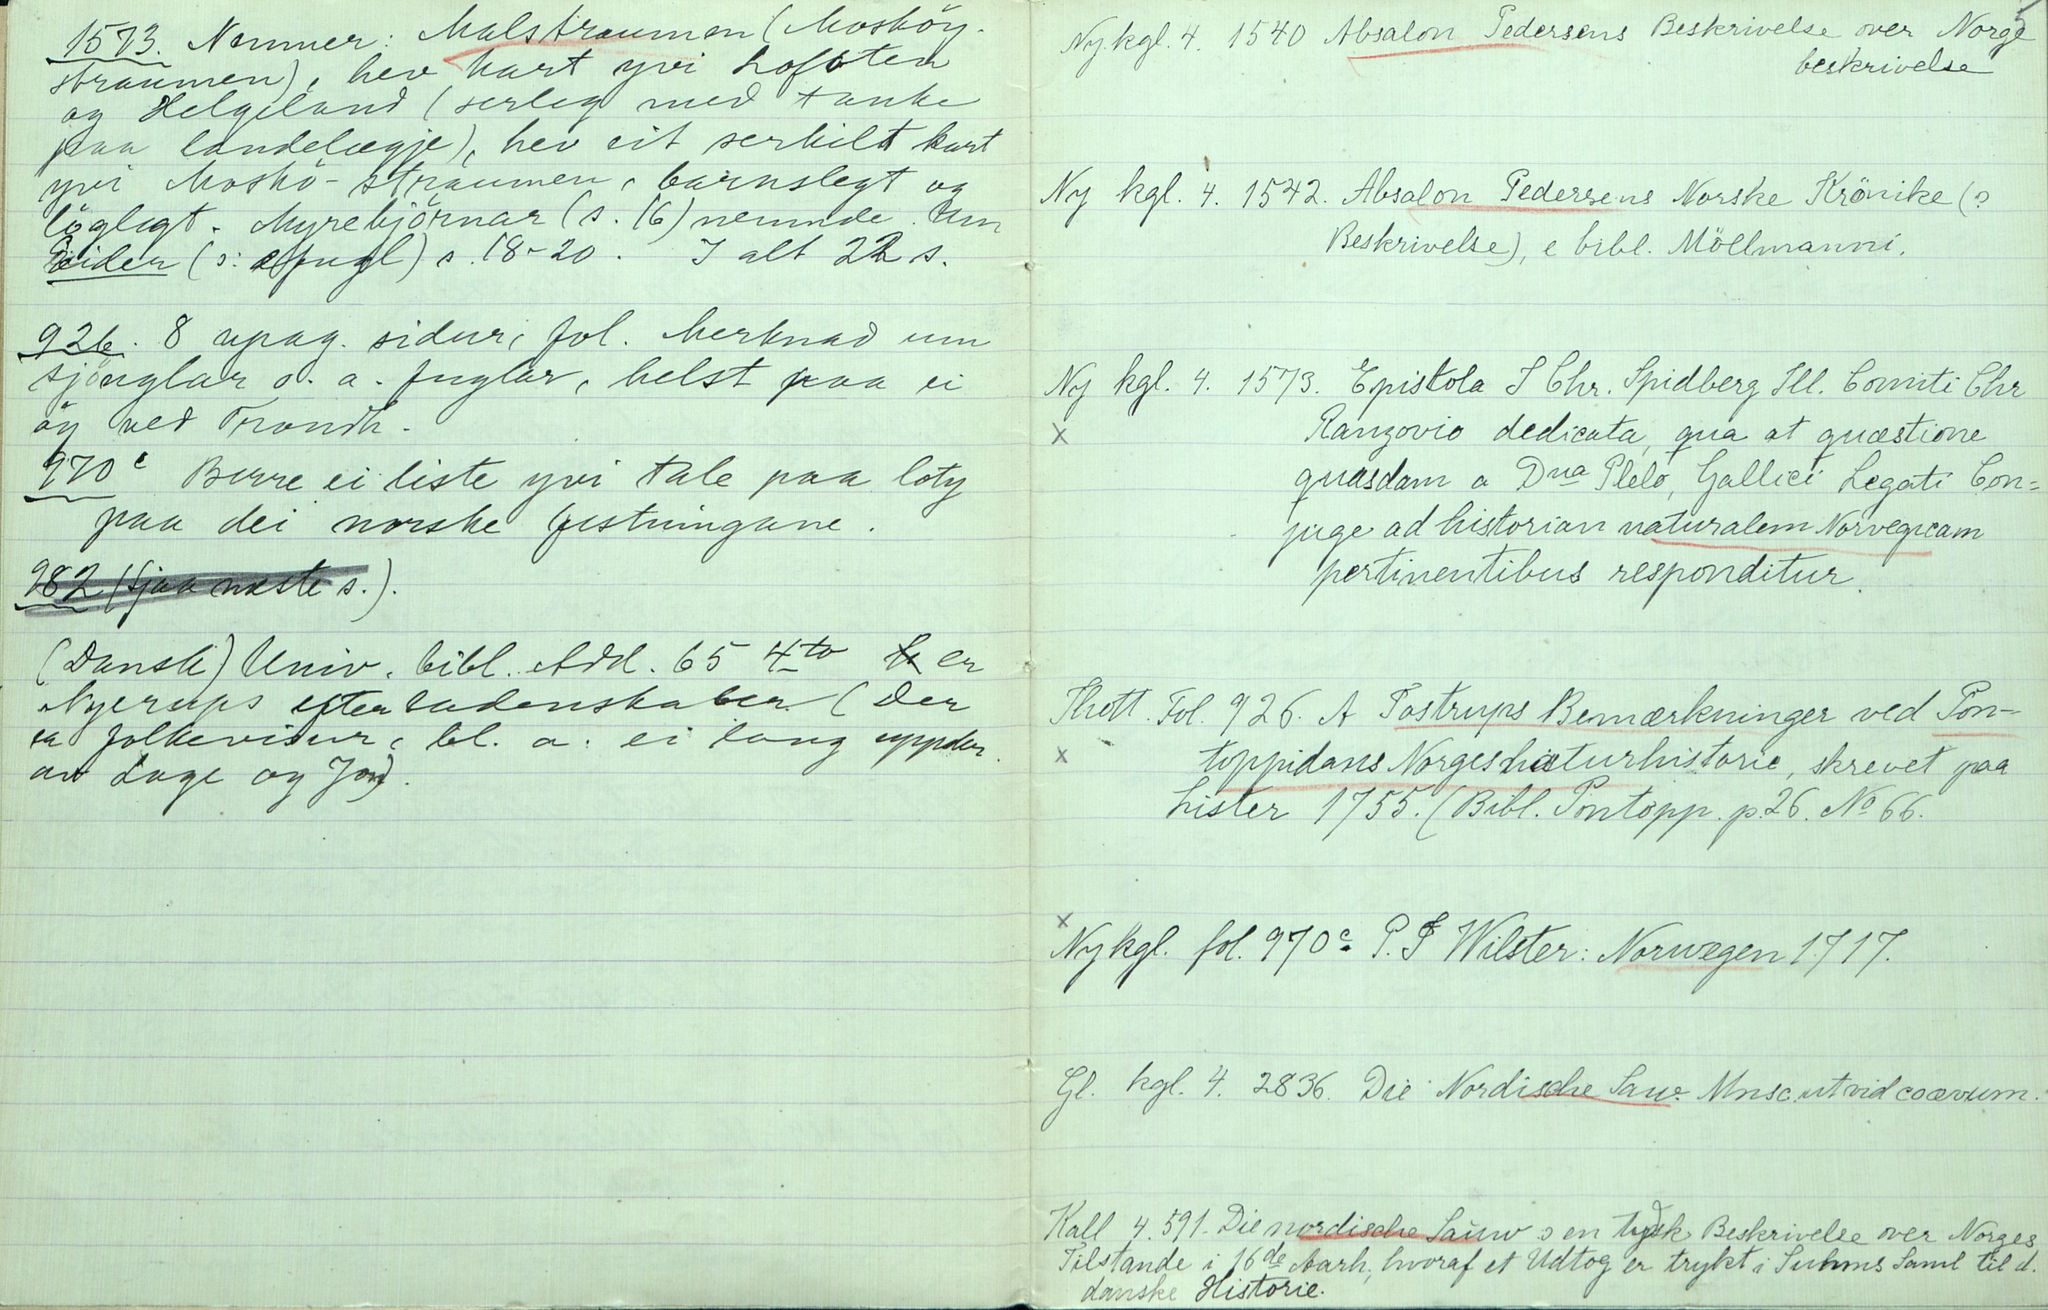 1573. Nemner: Malstraumen (Mosköy-
straumen), hev kart yvi Lofoten
og Helgeland (serleg med tanke
paa landelægje), hev eit serkilt kart
yvi Moskö-straumen, barnslegt og
löglegt. Myrebjörnar (s. 16) nemnde. Um
Eider (ɔ: fugl) s. 18-20. I alt 22 s.
926. 8 upag. sidur, fol. Merknad um
sjöuglar o. a. fuglar, helst paa ei
öy ved Trondh.
970c Berre ei liste yvi tale paa
paa dei norske festningane.
982 (sjaa næste s.).
(Dansk) Univ. bibl. Add. 65 4to er
Nyerups efterladenskaber (Der
er folkevisur, bl. a. ei lang uppskr.
av Lage og Jon).
5
Ny kgl. 4. 1540 Absalon Pedersens Beskrivelse over Norge
beskrivelse
Ny kgl. 4. 1542. Absalon Pedersens Norske Krönike (?
Beskrivelse), e bibl. Möllmanni.
Ny kgl. 4. 1573. Epistola J Chr. Spidberg Ill. Comiti Chr
x Ranzovio dedicata, qua at quæstione
quasdam a Dna Plelo, Gallici Legati Con=
juge ad historian naturalem Norvegicam
pertinentibus responditur.
Thott. Fol. 926. A Tostrups Bemærkninger ved Pon-
x toppidans Norges naturhistorie, skrevet paa
Lister 1755. (Bibl. Pontopp. p. 26. No 66.
x
Ny kgl. fol. 970c. P. J Wilster: Norwegen 1717.
Gl. kgl. 4. 2836. Die Nordische Sauw. Mnsc. ut vid coævum.
Kall 4. 591. Die nordische Sauw ɔ en tydsk Beskrivelse over Norges
Tilstande i 16de Aarh., hvoraf et Udtog er trykt i Suhms Saml til d.
danske Historie.